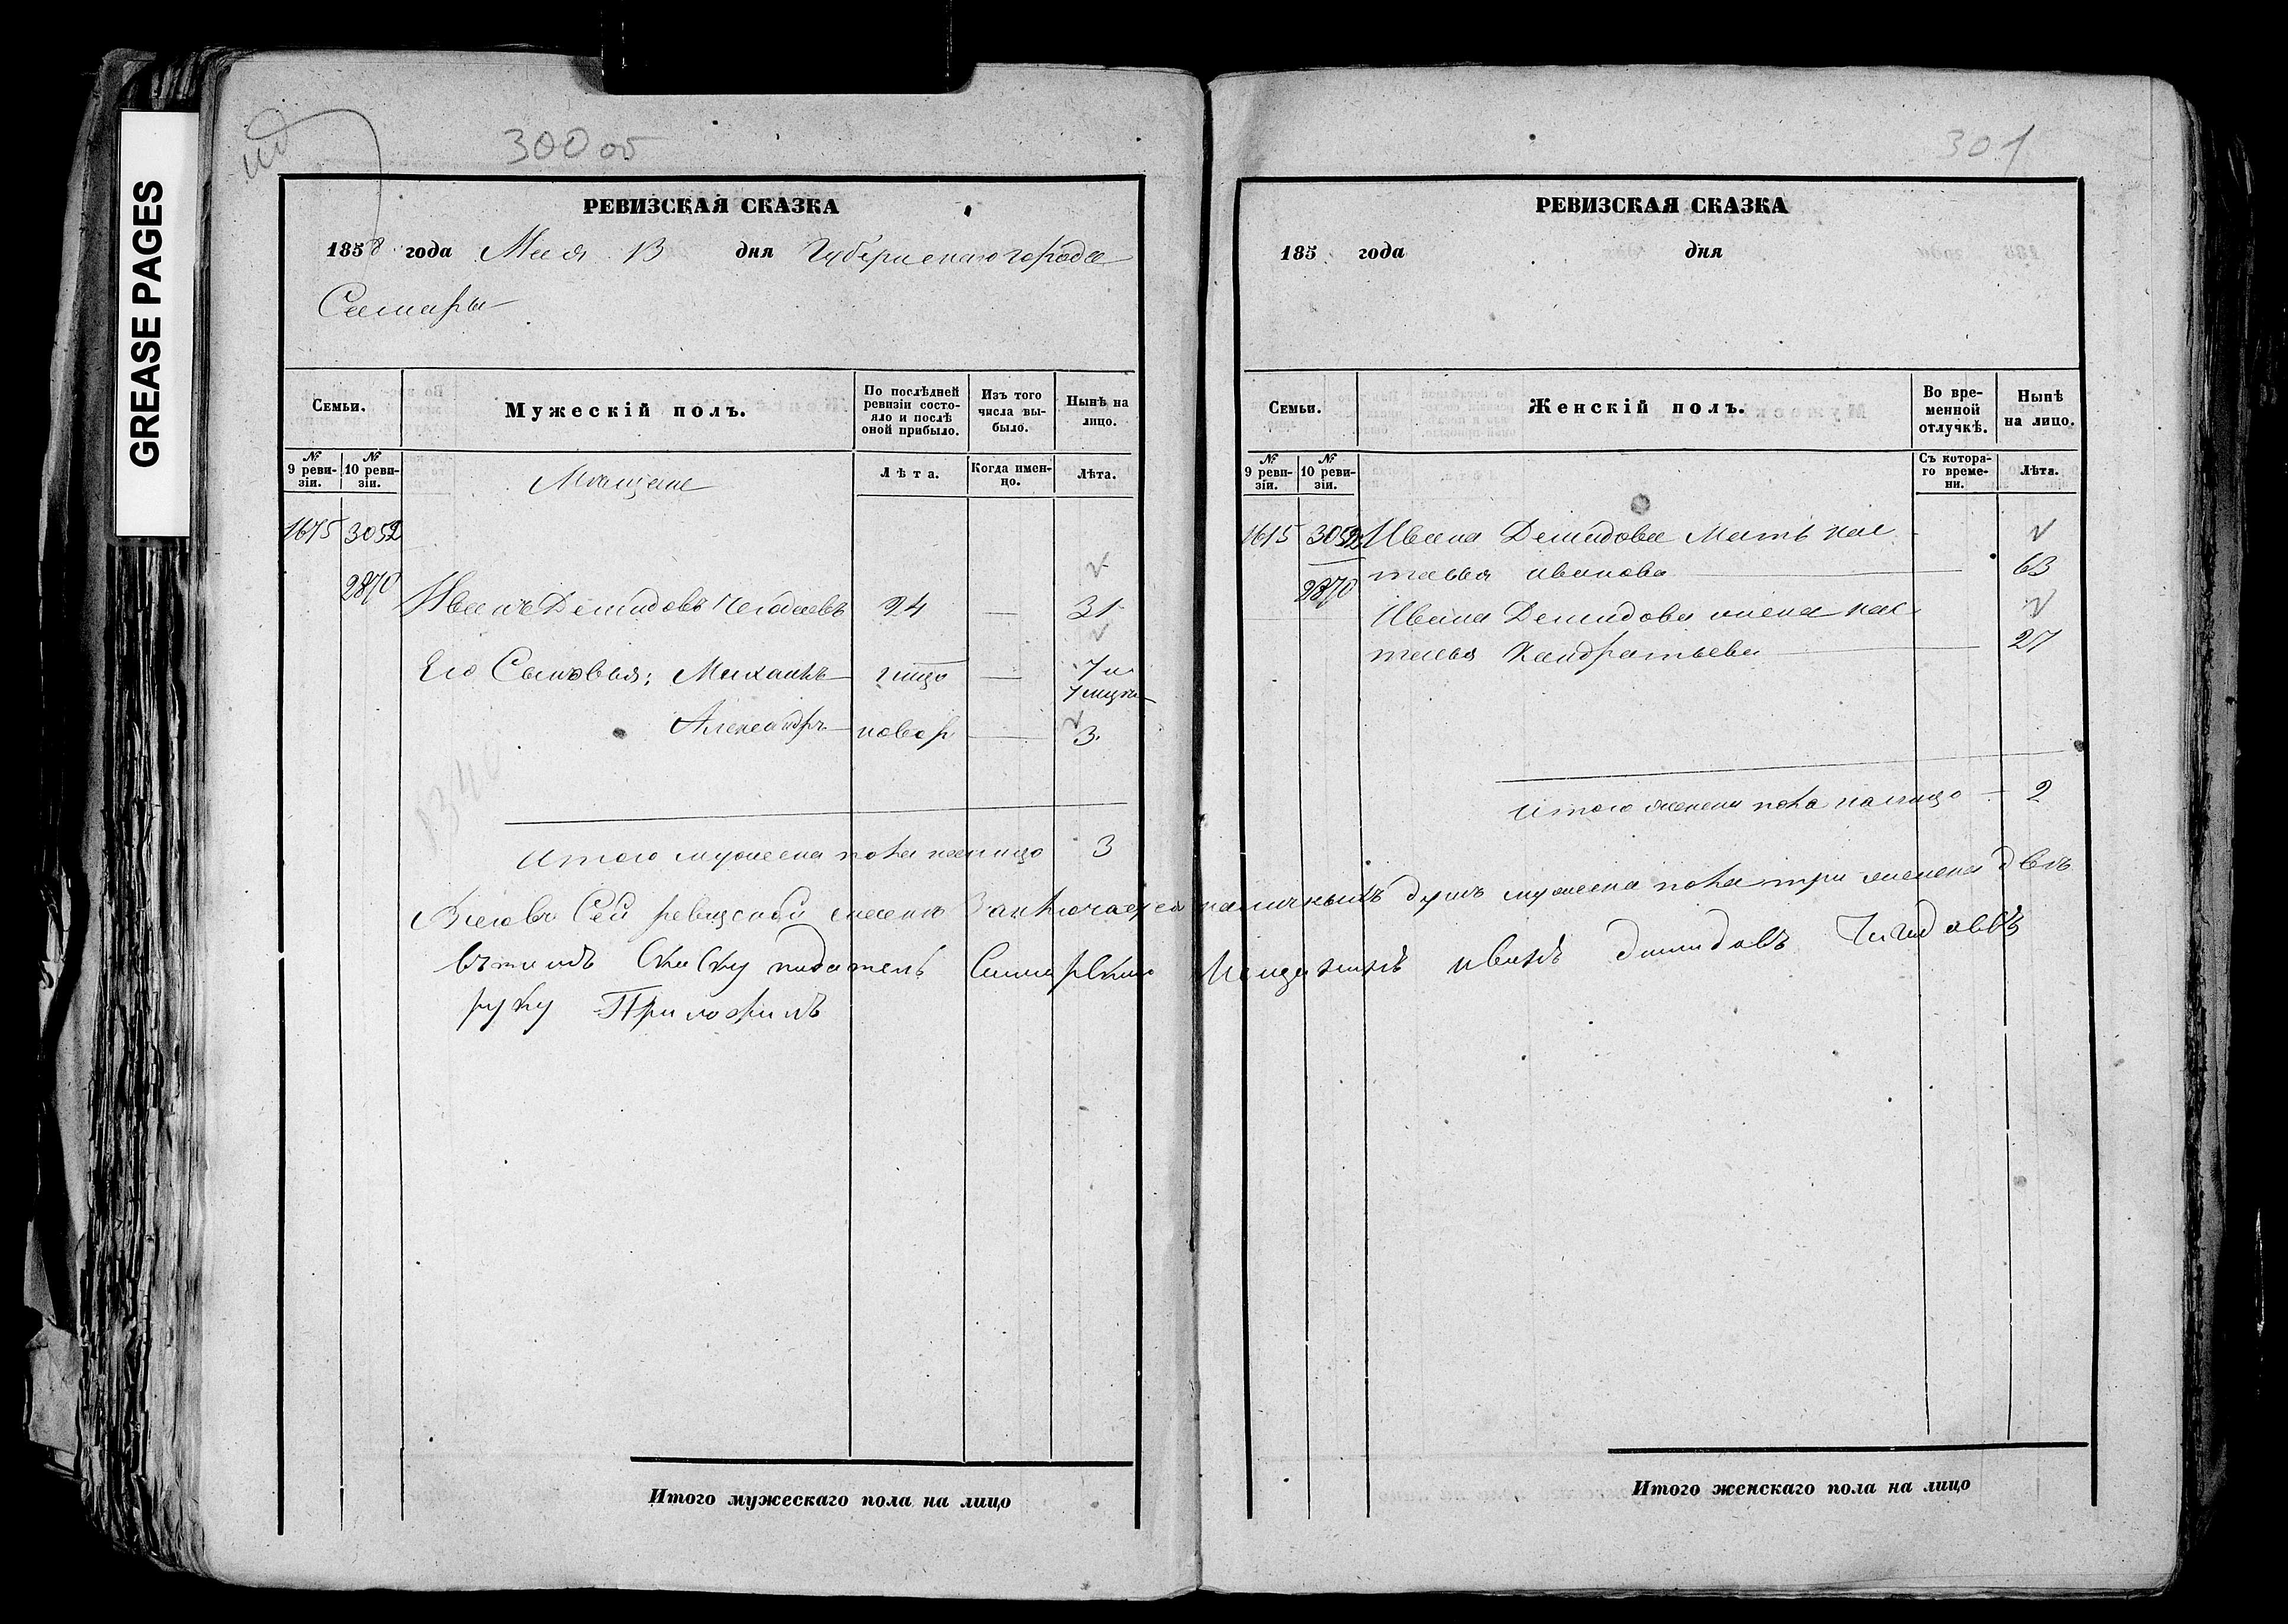 GREASE PAGES
300 об
РЕВИЗСКАЯ СКАЗКА
1858 года Мая 13 дня Губернскаго города
Самары
Семьи.
Мужескій полъ.
По послѣдней ревизіи состояло и послѣ оной прибыло.
Изъ того числа выбыло.
Нынѣ на лицо.
№ 9 ревизіи.
№ 10 ревизіи.
Мещане
Лѣта.
Когда именно.
Лѣта.
1675 3052
2870
Иванъ Демидовъ 24 — 31
Его Сыновья: Михаилъ — 7 и
Александръ — новор — 3
1340
Итого мужеска пола налицо 3
301
РЕВИЗСКАЯ СКАЗКА
185 года дня
Семьи.
Женскій полъ.
Во временной отлучкѣ.
Нынѣ на лицо.
№ 9 ревизіи.
№ 10 ревизіи.
Съ котораго времени.
Лѣта.
1615 3052 Ивана Демидова Мать нас
2870 тасья иванова — 63
Ивана Демидова жена нас
тасья Кандратьева — 27
Итого женска пола налицо — 2
Всего въ Сей ревиской скаске Заключается наличныхъ душъ мужеска пола три женска двѣ
Самарской Мещанинъ иванъ димидовъ
руку Приложилъ
Итого мужескаго пола на лицо
Итого женскаго пола на лицо